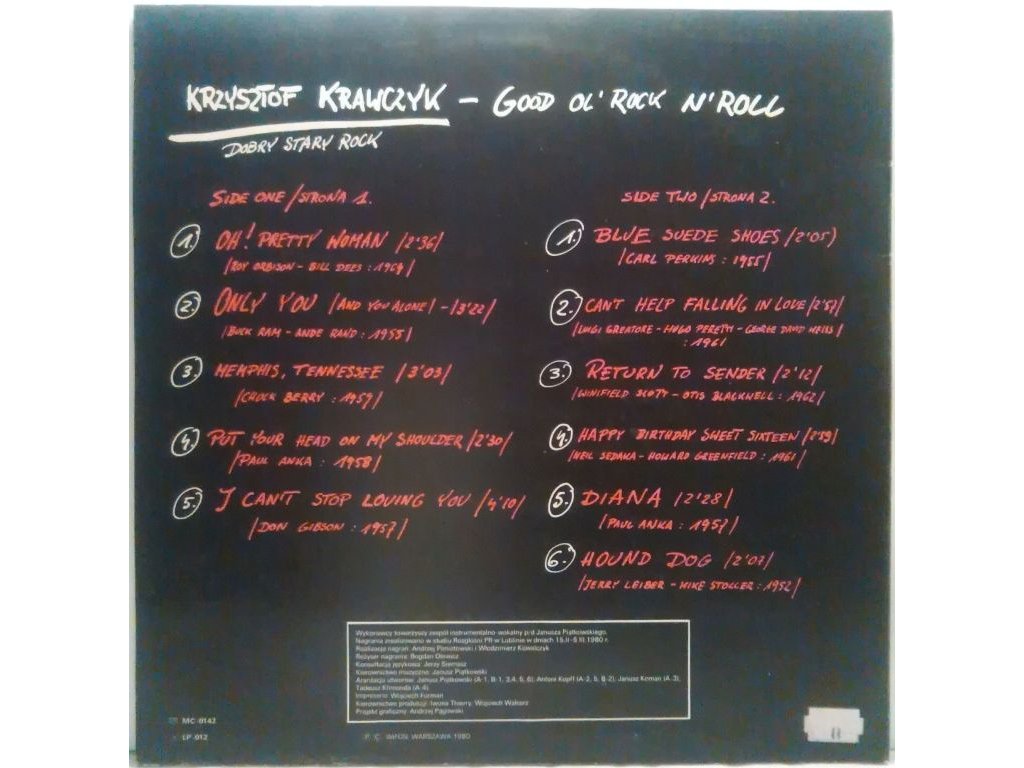 KRZYSZTOF KRAWCZYK – GOOD OL' ROCK N' ROLL
DOBRY STARY ROCK
SIDE ONE /STRONA 1.
1. OH! PRETTY WOMAN /2'36/
/ROY ORBISON - BILL DEES : 1964/
2. ONLY YOU /AND YOU ALONE/ - /3'22/
/BUCK RAM - ANDE RAND : 1955/
3. MEMPHIS, TENNESSEE /3'03/
/CHUCK BERRY : 1959/
4. PUT YOUR HEAD ON MY SHOULDER /2'30/
/PAUL ANKA : 1958/
5. I CAN'T STOP LOVING YOU /4'10/
/DON GIBSON : 1957/
SIDE TWO /STRONA 2.
1. BLUE SUEDE SHOES /2'05)
/CARL PERKINS : 1955/
2. CAN'T HELP FALLING IN LOVE /2'57/
/LUIGI CREATORE - HUGO PERETTI - GEORGE DAVID WEISS/
: 1961
3. RETURN TO SENDER /2'12/
/WINIFIELD SCOTT - OTIS BLACKWELL : 1962/
4. HAPPY BIRTHDAY SWEET SIXTEEN /2'59/
/NEIL SEDAKA - HOWARD GREENFIELD : 1961/
5. DIANA /2'28/
/PAUL ANKA : 1957/
6. HOUND DOG /2'07/
/JERRY LEIBER - MIKE STOLLER : 1952/
Wykonawcy towarzyszy zespół instrumentalno-wokalny p/d Janusza Piątkowskiego.
Nagrania zrealizowano w studiu Rozgłośni PR w Lublinie w dniach 15.II-5 III 1980 r.
Realizacja nagrań: Andrzej Poniatowski i Włodzimierz Kowalczyk
Reżyser nagrania: Bogdan
Konsultacja językowa: Jerzy Siemasz
Kierownictwo muzyczne: Janusz Piątkowski
Aranżacja utworów: Janusz Piątkowski (A-1, B-1, 3,4, 5, 6), Antoni Kopff (A-2, 5, B-2), Janusz Koman (A-3),
Tadeusz Klimonda (A-4)
Impresario: Wojciech Forman
Kierownictwo produkcji: Iwona Thierry, Wojciech
Projekt graficzny: Andrzej Pągowski
MC-0142
LP-012
P. C. WIFON, WARSZAWA 1980